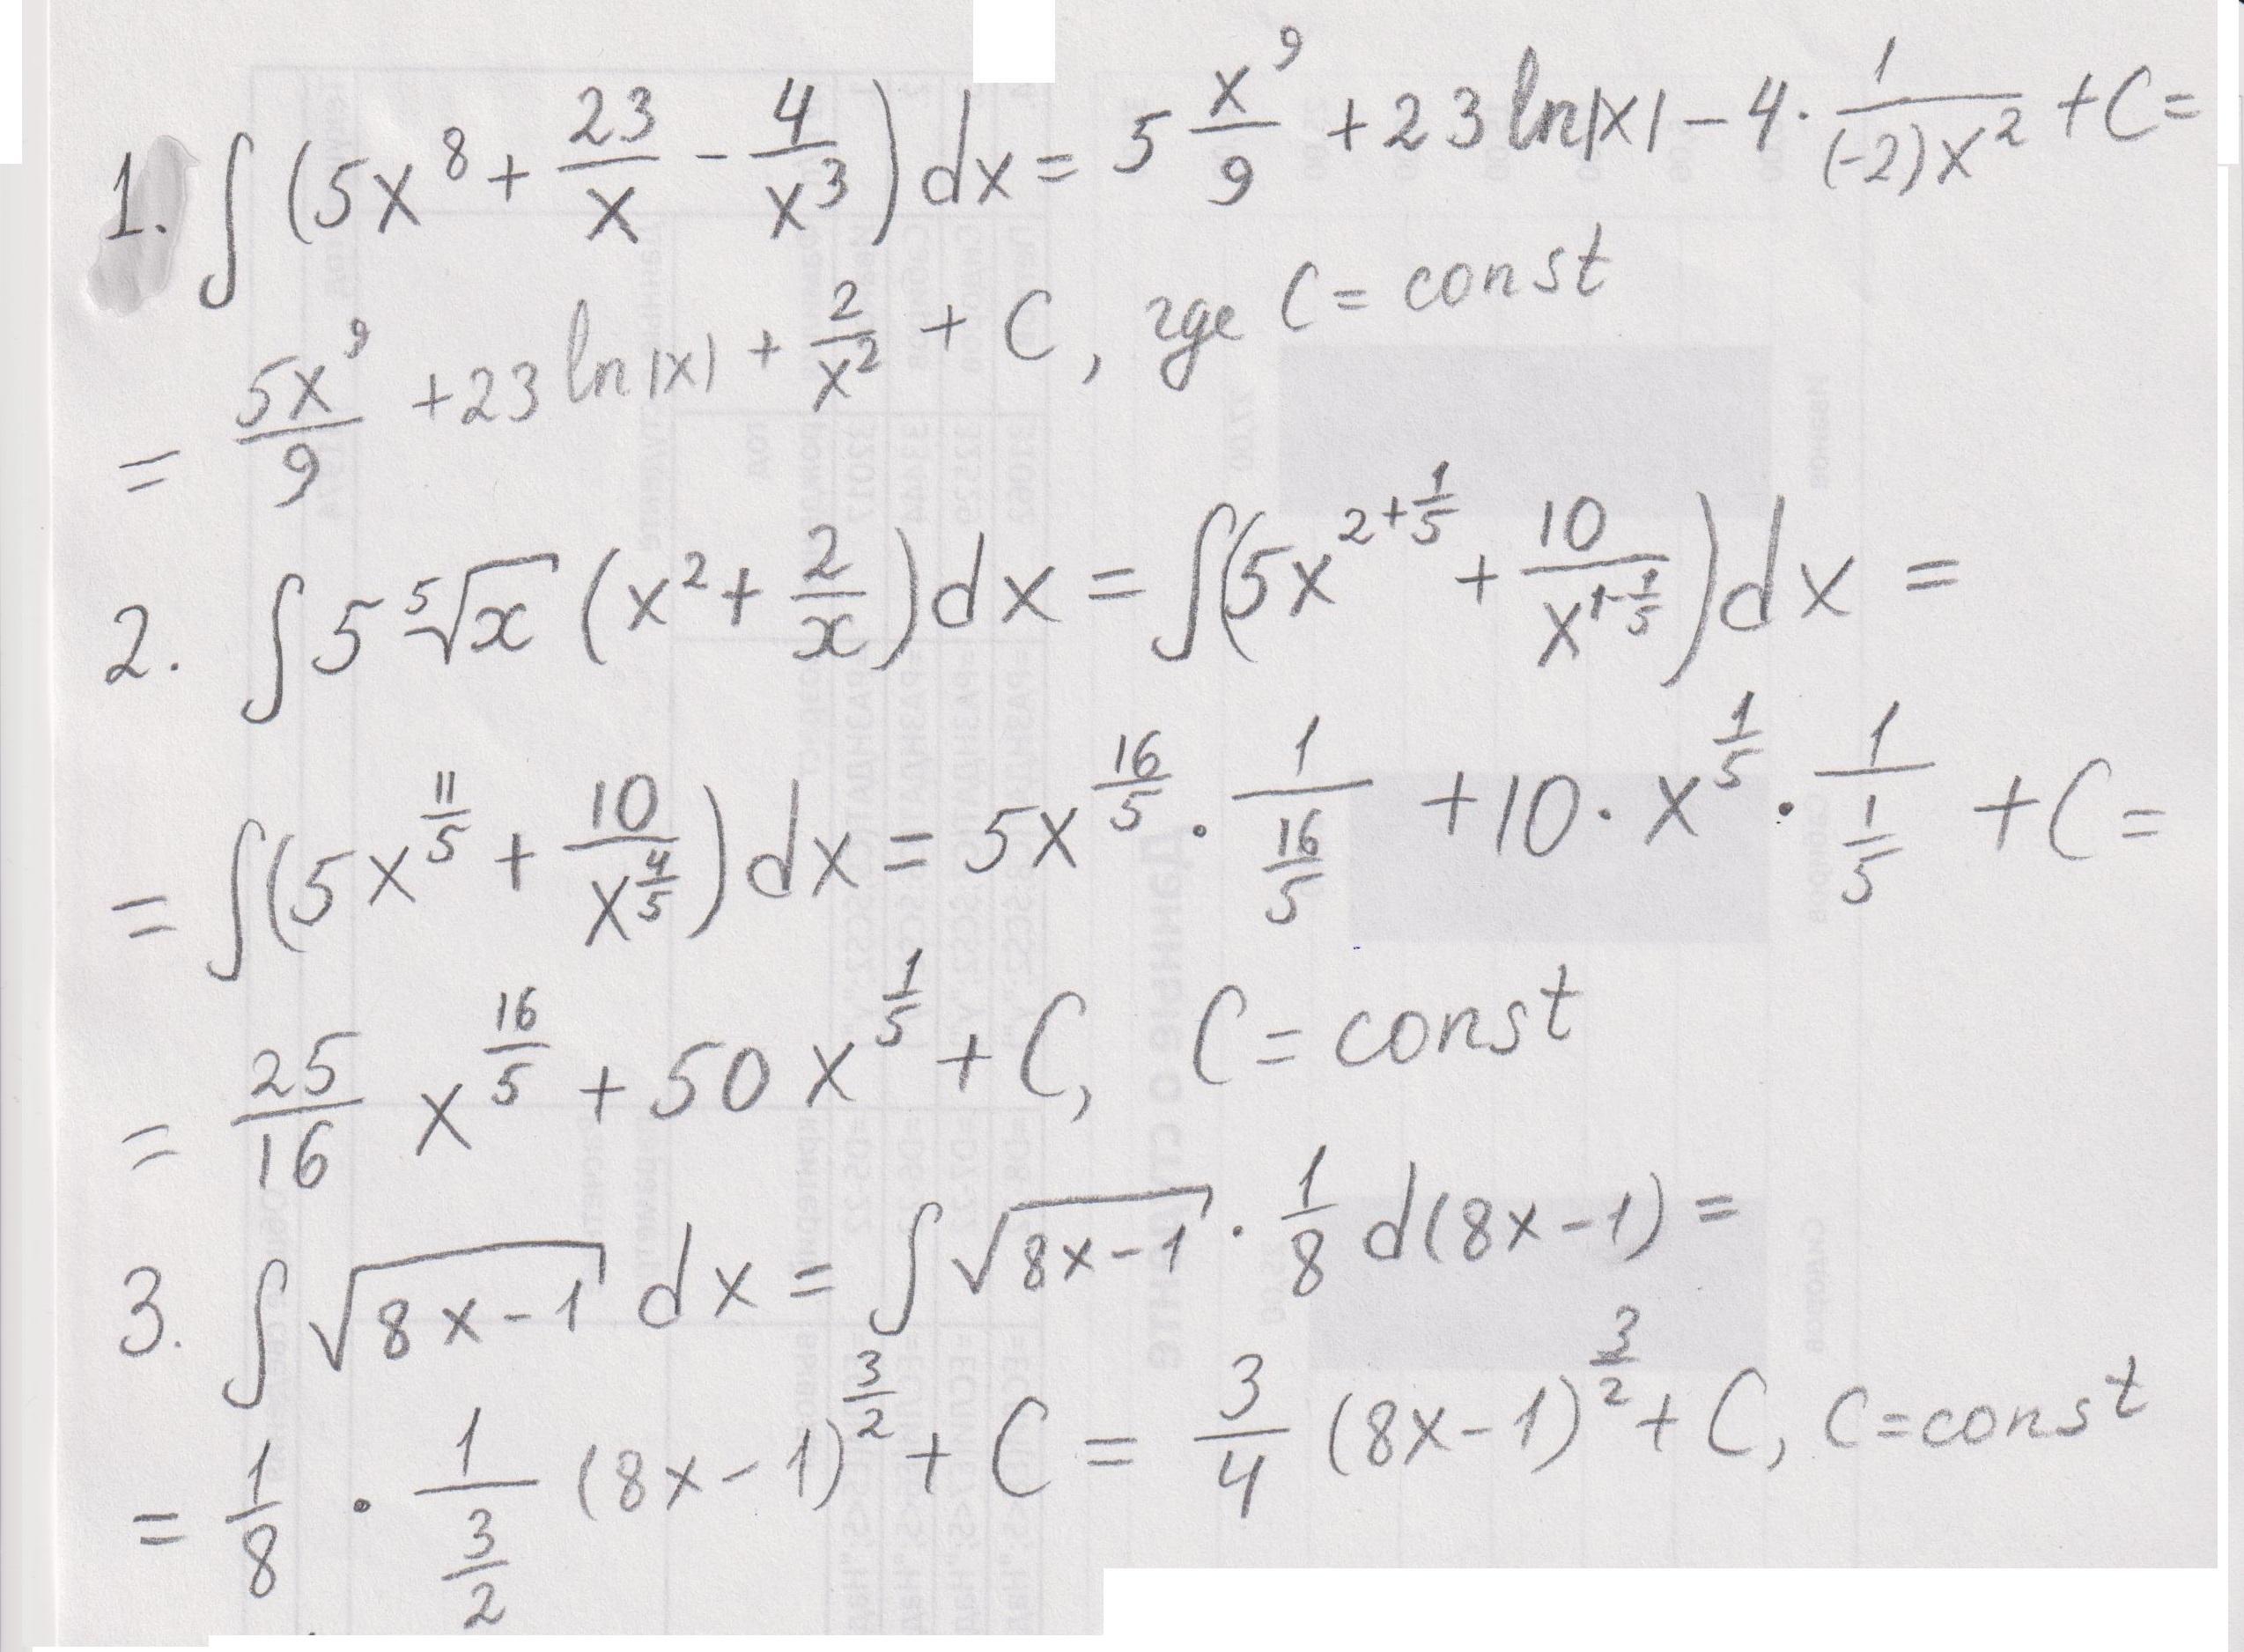 1. ∫ (5x⁸ + 23/x − 4/x³) dx = 5 x⁹/9 + 23 ln|x| − 4 · 1/((-2)x²) + C =
= 5x⁹/9 + 23 ln|x| + 2/x² + C, где C = const
2. ∫ 5 ⁵√x (x² + 2/x) dx = ∫ (5x^(2+1/5) + 10/x^(1-1/5)) dx =
= ∫ (5x^(11/5) + 10/x^(4/5)) dx = 5x^(16/5) · 1/(16/5) + 10 · x^(1/5) · 1/(1/5) + C =
= 25/16 x^(16/5) + 50 x^(1/5) + C, C = const
3. ∫ √(8x−1) dx = ∫ √(8x−1) · 1/8 d(8x−1) =
= 1/8 · 1/(3/2) (8x−1)^(3/2) + C = 3/4 (8x−1)^(3/2) + C, C = const